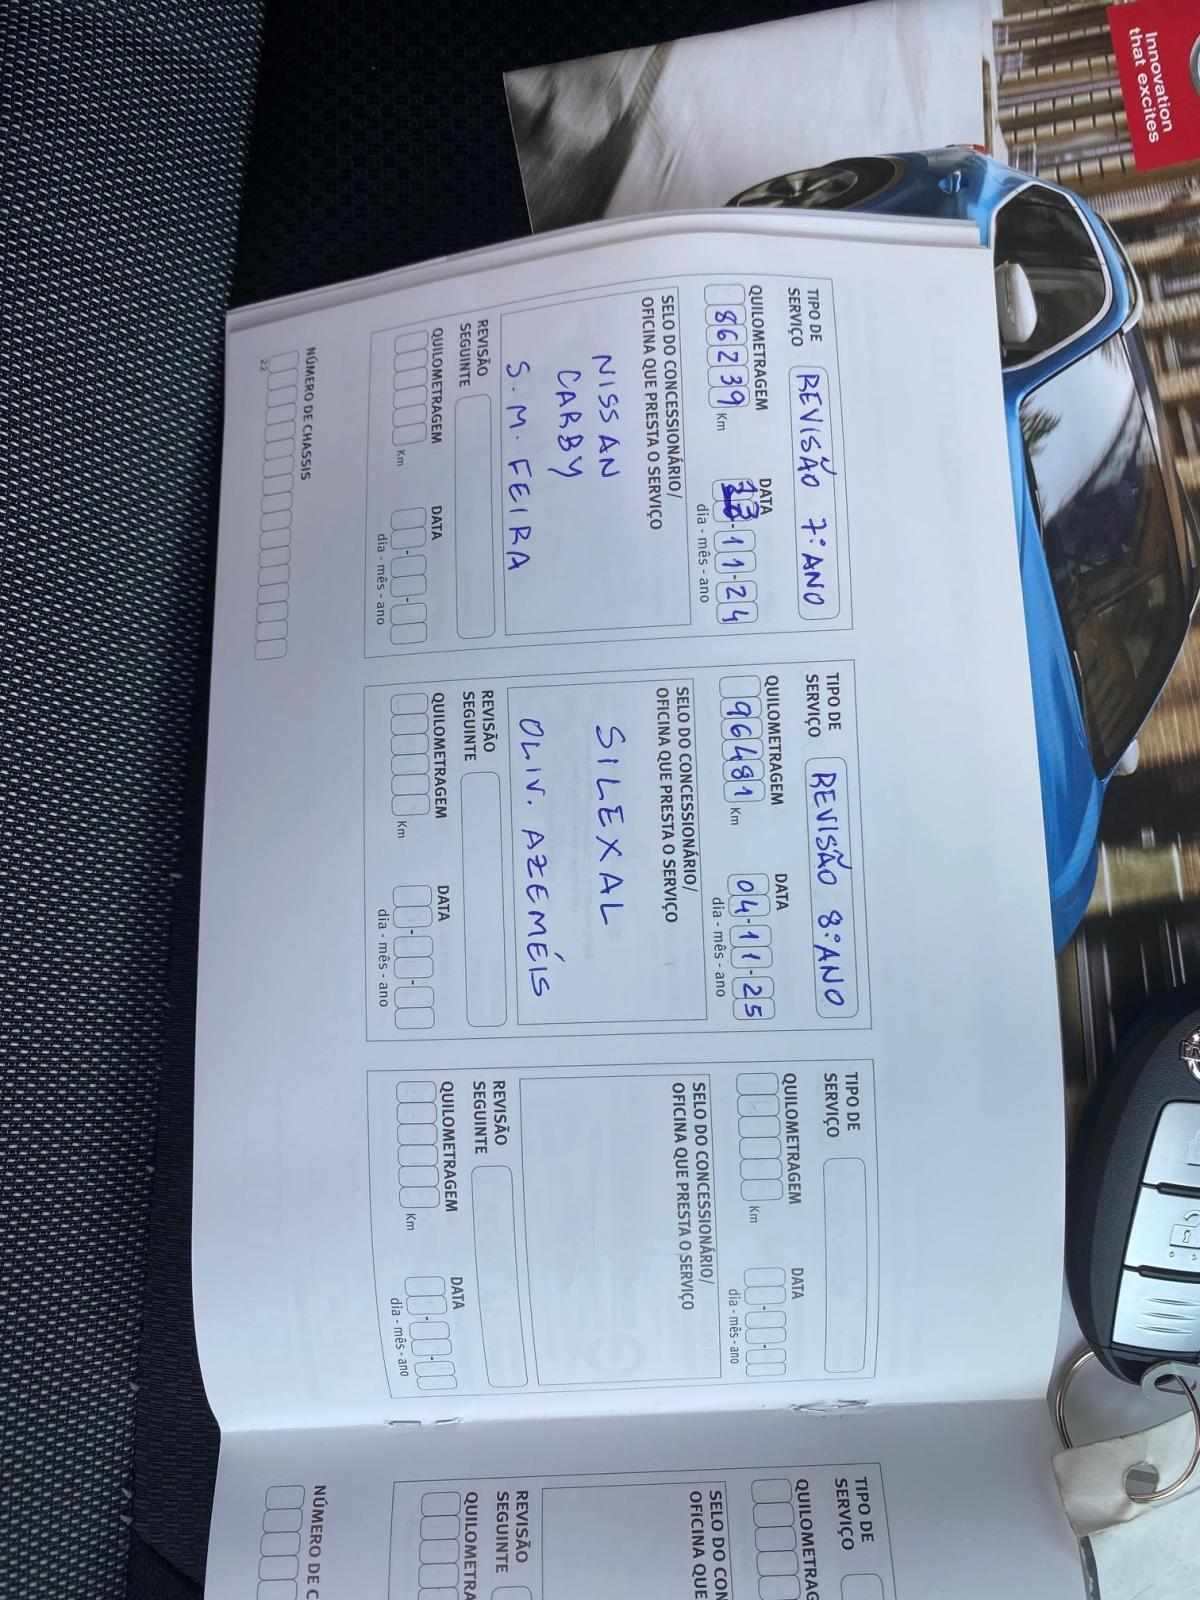 Innovation
that excites
TIPO DE
SERVIÇO
REVISÃO 7.º ANO
QUILOMETRAGEM
86239 Km
DATA
13-11-24
dia - mês - ano
SELO DO CONCESSIONÁRIO/
OFICINA QUE PRESTA O SERVIÇO
NISSAN
CARBY
S. M. FEIRA
REVISÃO
SEGUINTE
QUILOMETRAGEM
Km
DATA
dia - mês - ano
NÚMERO DE CHASSIS
22
TIPO DE
SERVIÇO
REVISÃO 8.º ANO
QUILOMETRAGEM
96481 Km
DATA
04-11-25
dia - mês - ano
SELO DO CONCESSIONÁRIO/
OFICINA QUE PRESTA O SERVIÇO
SILEXAL
OLIV. AZEMÉIS
REVISÃO
SEGUINTE
QUILOMETRAGEM
Km
DATA
dia - mês - ano
TIPO DE
SERVIÇO
QUILOMETRAGEM
Km
DATA
dia - mês - ano
SELO DO CONCESSIONÁRIO/
OFICINA QUE PRESTA O SERVIÇO
REVISÃO
SEGUINTE
QUILOMETRAGEM
Km
DATA
dia - mês - ano
TIPO DE
SERVIÇO
QUILOMETRAG
SELO DO CON
OFICINA QUE
REVISÃO
SEGUINTE
QUILOMETRA
NÚMERO DE C